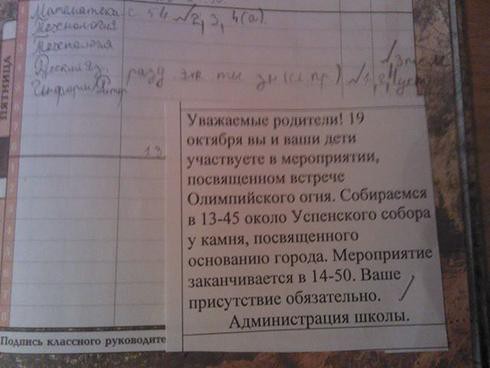 Математека с 54 √2, 3, 4(а).
Технология
технология
Русский яз.
Информ
ПЯТНИЦА
13
Уважаемые родители! 19
октября вы и ваши дети
участвуете в мероприятии,
посвященном встрече
Олимпийского огня. Собираемся
в 13-45 около Успенского собора
у камня, посвященного
основанию города. Мероприятие
заканчивается в 14-50. Ваше
присутствие обязательно.
Администрация школы.
Подпись классного руководите